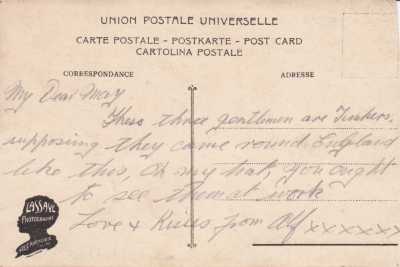 UNION POSTALE UNIVERSELLE
CARTE POSTALE - POSTKARTE - POST CARD
CARTOLINA POSTALE
CORRESPONDANCE
ADRESSE
My Dear May
These three gentlemen are Turkers,
supposing they came round England
like this, Oh my hat, you ought
to see them at work
Love & Kisses from Alf xxxxxx
LASSAVE
PHOTOGRAPHE